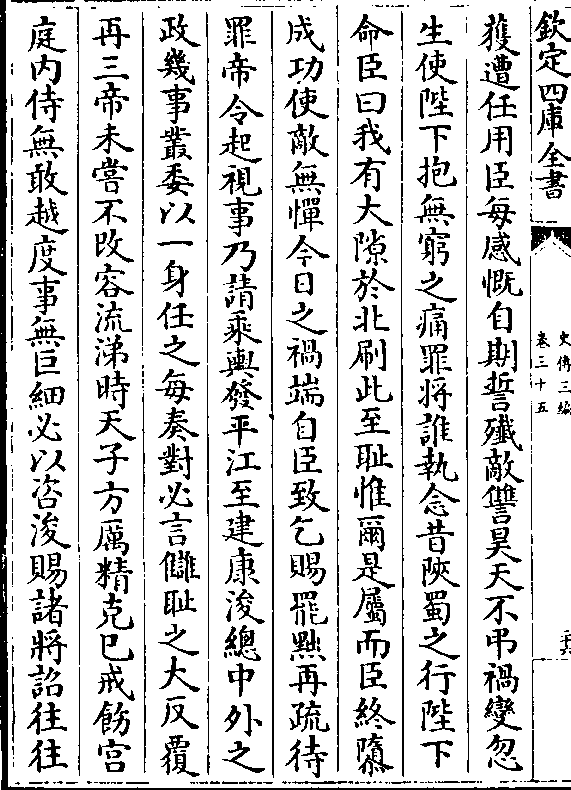 欽定四庫全書
史傳三編
卷三十五
獲遭任用臣每感慨自期誓殲敵讐昊天不弔禍變忽
生使陛下抱無窮之痛罪將誰執念昔陝蜀之行陛下
命臣曰我有大隙於北刷此至耻惟爾是屬而臣終隳
成功使敵無憚今日之禍端自臣致乞賜罷黜再疏待
罪帝令起視事乃請乘輿發平江至建康浚總中外之
政幾事叢委以一身任之每奏對必言讎耻之大反覆
再三帝未嘗不改容流涕時天子方厲精克己戒飭宮
庭内侍無敢越度事無巨細必以咨浚賜諸將詔往往